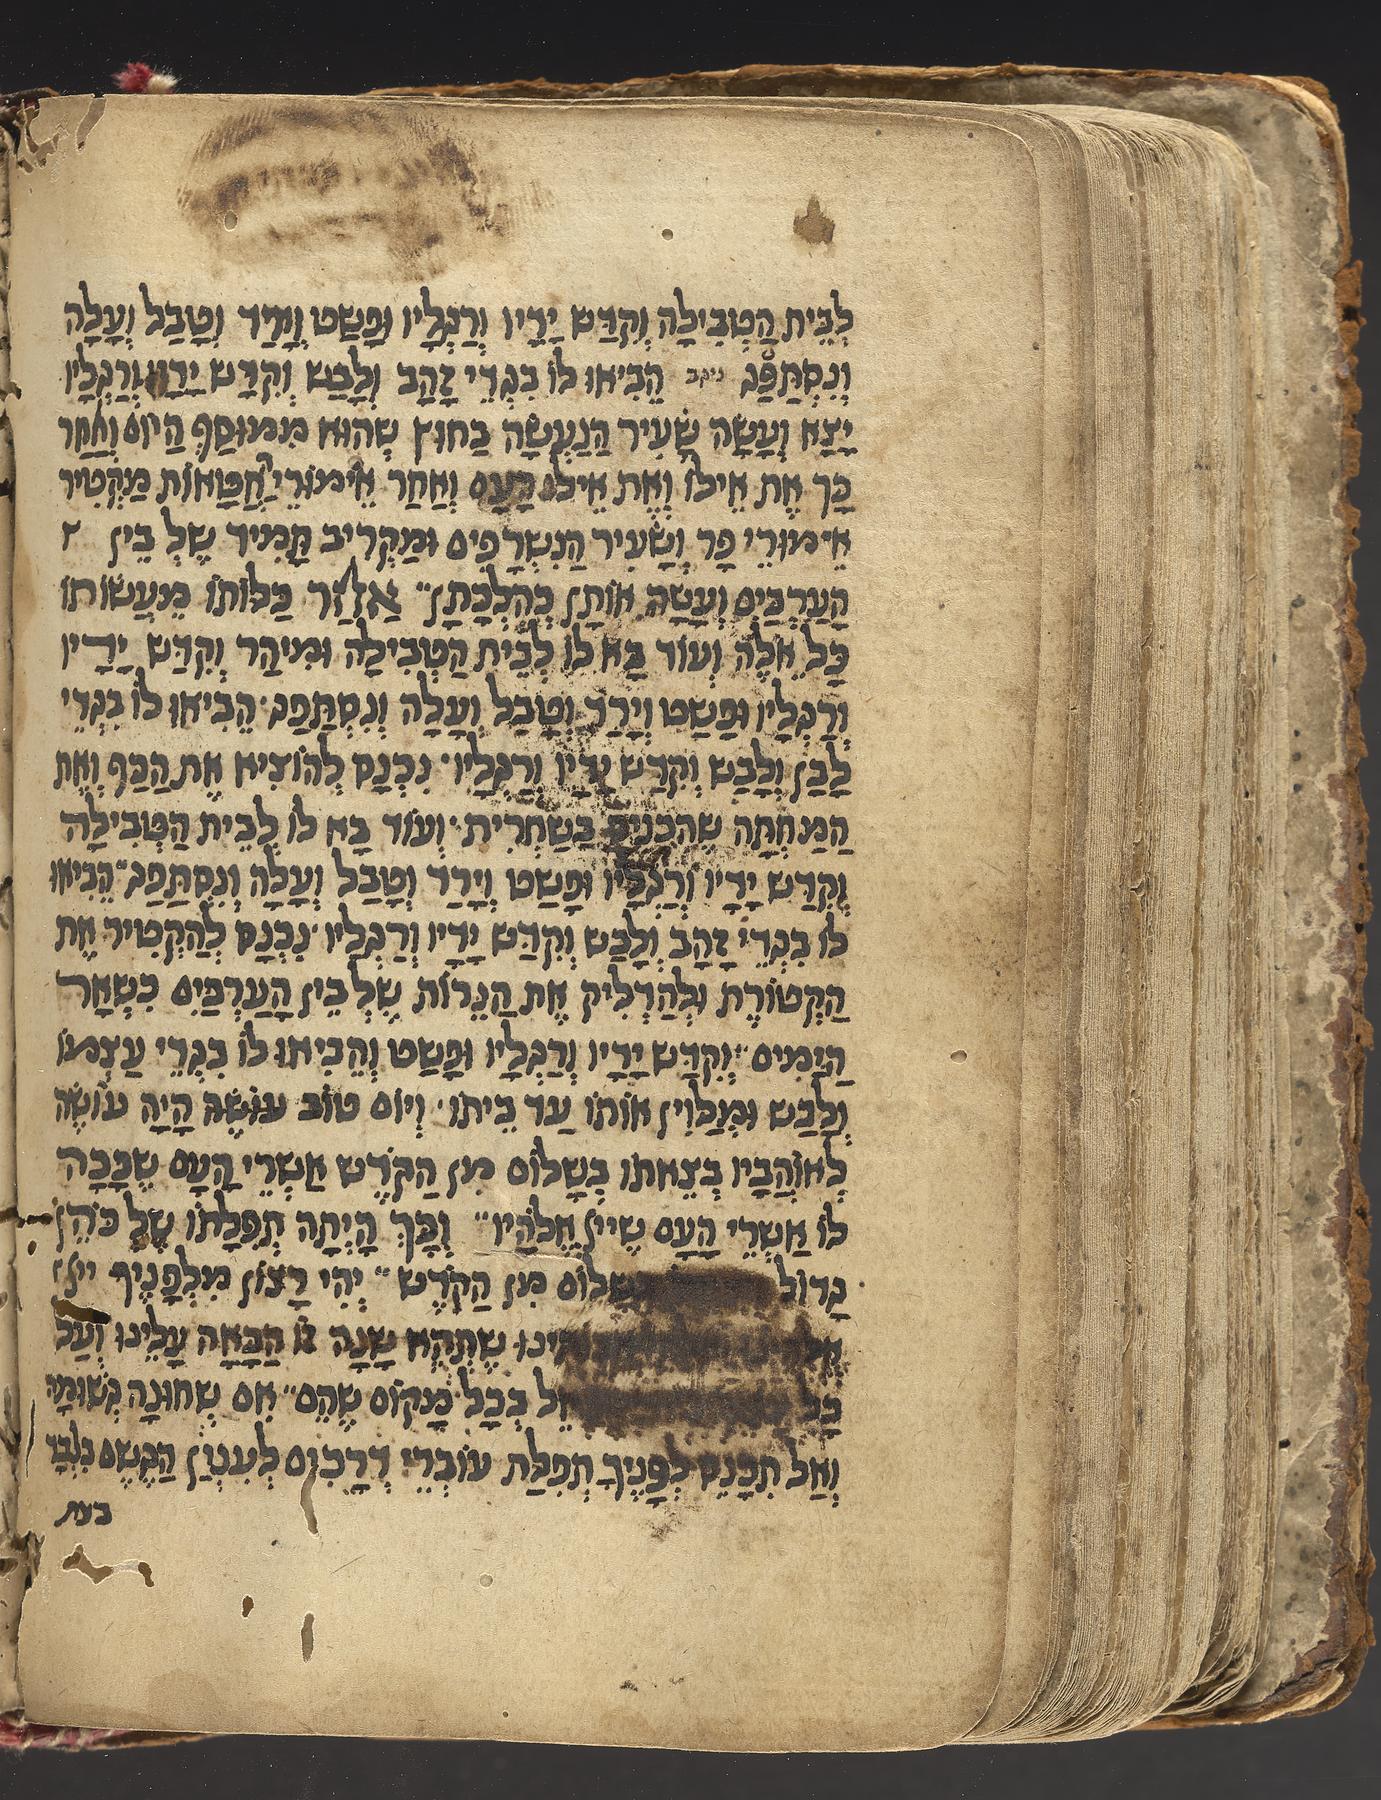 לְבֵית הַטְּבִילָה וְקִדַּשׁ יָדָיו וְרַגְלָיו וּפָשַׁט וְיָרַד וְטָבַל וְעָלָה
וְנִסְתַּפַּג הֵבִיאוּ לוֹ בִּגְדֵי זָהָב וְלָבַשׁ וְקִדַּשׁ יָדָיו וְרַגְלָיו
יָצָא וְעָשָׂה שָׂעִיר הַנַּעֲשֶׂה בַּחוּץ שֶׁהוּא מִמּוּסַף הַיּוֹם וְאַחַר
כָּךְ אֶת אֵילוֹ וְאֶת אֵיל הָעָם וְאַחַר אֵימוּרֵי חַטָּאוֹת מַקְטִיר
אֵימוּרֵי פַר וְשָׂעִיר הַנִּשְׂרָפִים וּמַקְרִיב תָּמִיד שֶׁלְבֵין
הָעַרְבַּיִם וְעָשָׂה אוֹתָן כְּהִלְכָתָן אַחַר כַּלּוֹתוֹ מֵעֲשׂוֹתוֹ
כָּל אֵלֶּה וְעוֹד בָּא לוֹ לְבֵית הַטְּבִילָה וּמִיהַר וְקִדַּשׁ יָדָיו
וְרַגְלָיו וּפָשַׁט וְיָרַד וְטָבַל וְעָלָה וְנִסְתַּפַּג הֵבִיאוּ לוֹ בִּגְדֵי
לָבָן וְלָבַשׁ וְקִדַּשׁ יָדָיו וְרַגְלָיו נִכְנַס לְהוֹצִיא אֶת הַכַּף וְאֶת
הַמַּחְתָּה שֶׁהִכְנִיס בְּשַׁחֲרִית וְעוֹד בָּא לוֹ לְבֵית הַטְּבִילָה
וְקִדַּשׁ יָדָיו וְרַגְלָיו וּפָשַׁט וְיָרַד וְטָבַל וְעָלָה וְנִסְתַּפַּג הֵבִיאוּ
לוֹ בִּגְדֵי זָהָב וְלָבַשׁ וְקִדַּשׁ יָדָיו וְרַגְלָיו נִכְנַס לְהַקְטִיר אֶת
הַקְּטוֹרֶת וּלְהַדְלִיק אֶת הַנֵּרוֹת שֶׁלְבֵין הָעַרְבַּיִם כִּשְׁאָר
הַיָּמִים וְקִדַּשׁ יָדָיו וְרַגְלָיו וּפָשַׁט וְהֵבִיאוּ לוֹ בִּגְדֵי עַצְמוֹ
וְלָבַשׁ וּמְלַוִּין אוֹתוֹ עַד בֵּיתוֹ וְיוֹם טוֹב עוֹשֶׂה הָיָה עוֹשֶׂה
לְאוֹהֲבָיו בְּצֵאתוֹ בְּשָׁלוֹם מִן הַקֹּדֶשׁ אַשְׁרֵי הָעָם שֶׁכָּכָה
לוֹ אַשְׁרֵי הָעָם שֶׁייָ אֱלֹהָיו וְכָךְ הָיְתָה תְפִלָּתוֹ שֶׁל כֹּהֵן
גָּדוֹל בְּשָׁלוֹם מִן הַקֹּדֶשׁ יְהִי רָצוֹן מִלְּפָנֶיךָ ייָ
שֶׁתְּהֵא שָׁנָה זוֹ הַבָּאָה עָלֵינוּ וְעַל
כָּל בְּכָל מָקוֹם שֶׁהֵם אִם שְׁחוּנָה גְּשׁוּמָה
וְאַל תִּכָּנֵס לְפָנֶיךָ תְּפִלַּת עוֹבְרֵי דְרָכִים לְעִנְיַן הַגֶּשֶׁם בִּלְבָד
בעת